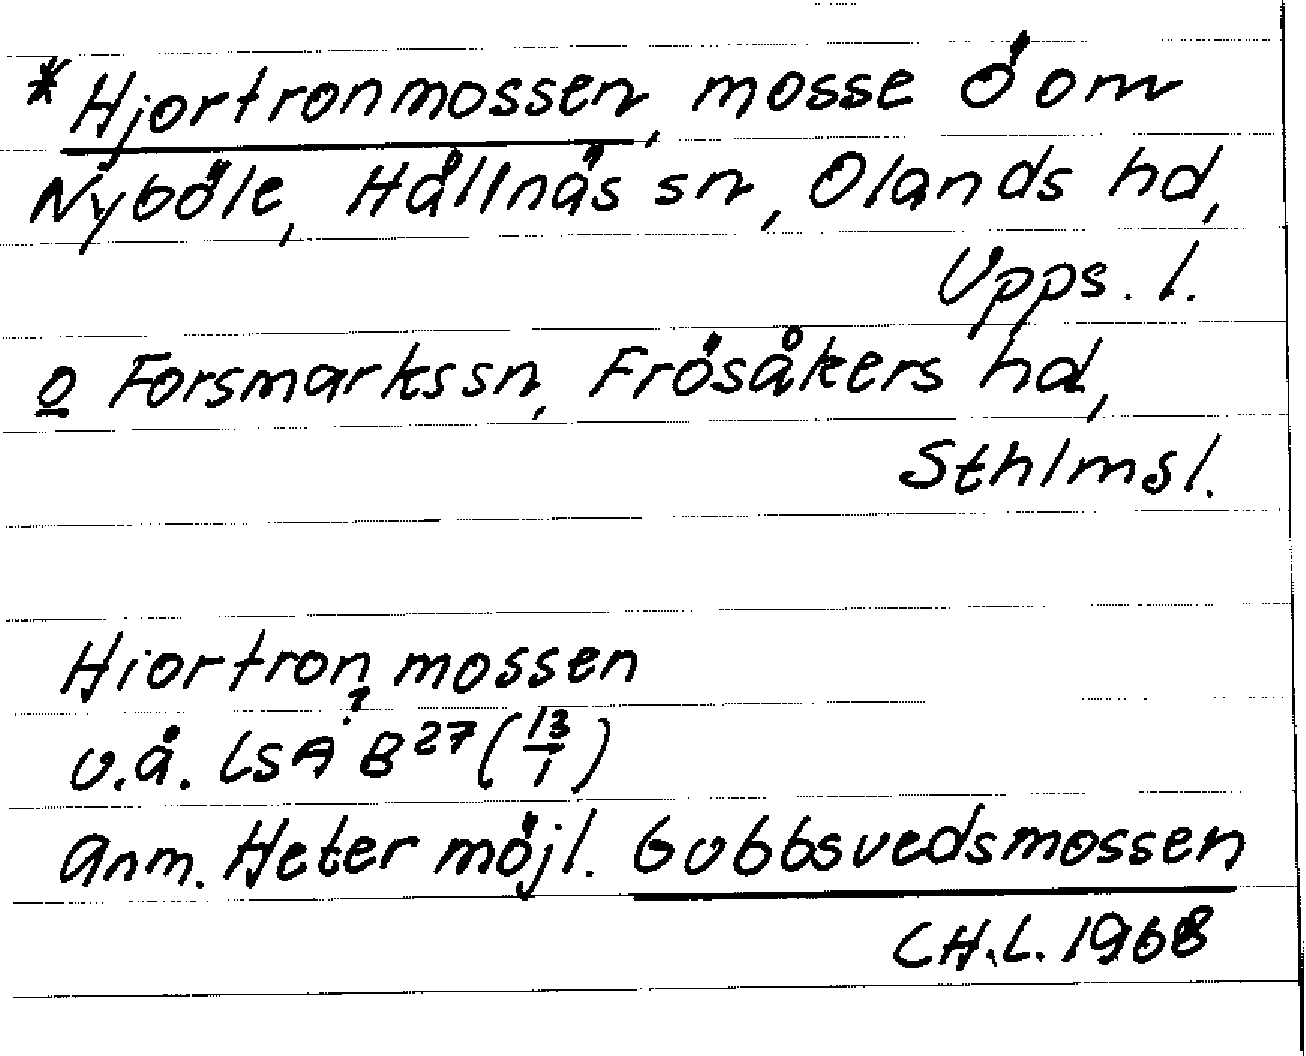 *Hjortronmossen, mosse ö om
Nyböle, Hållnäs sn, Olands hd,
Upps. l.
o Forsmarks sn, Frösåkers hd,
Sthlms l.
Hiortron mossen
?
u.å. LSA B27 (13/1)
Anm. Heter möjl. Gubbsvedsmossen
CH.L. 1968